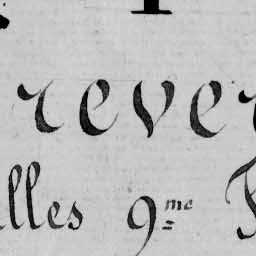 rever
lles 9me